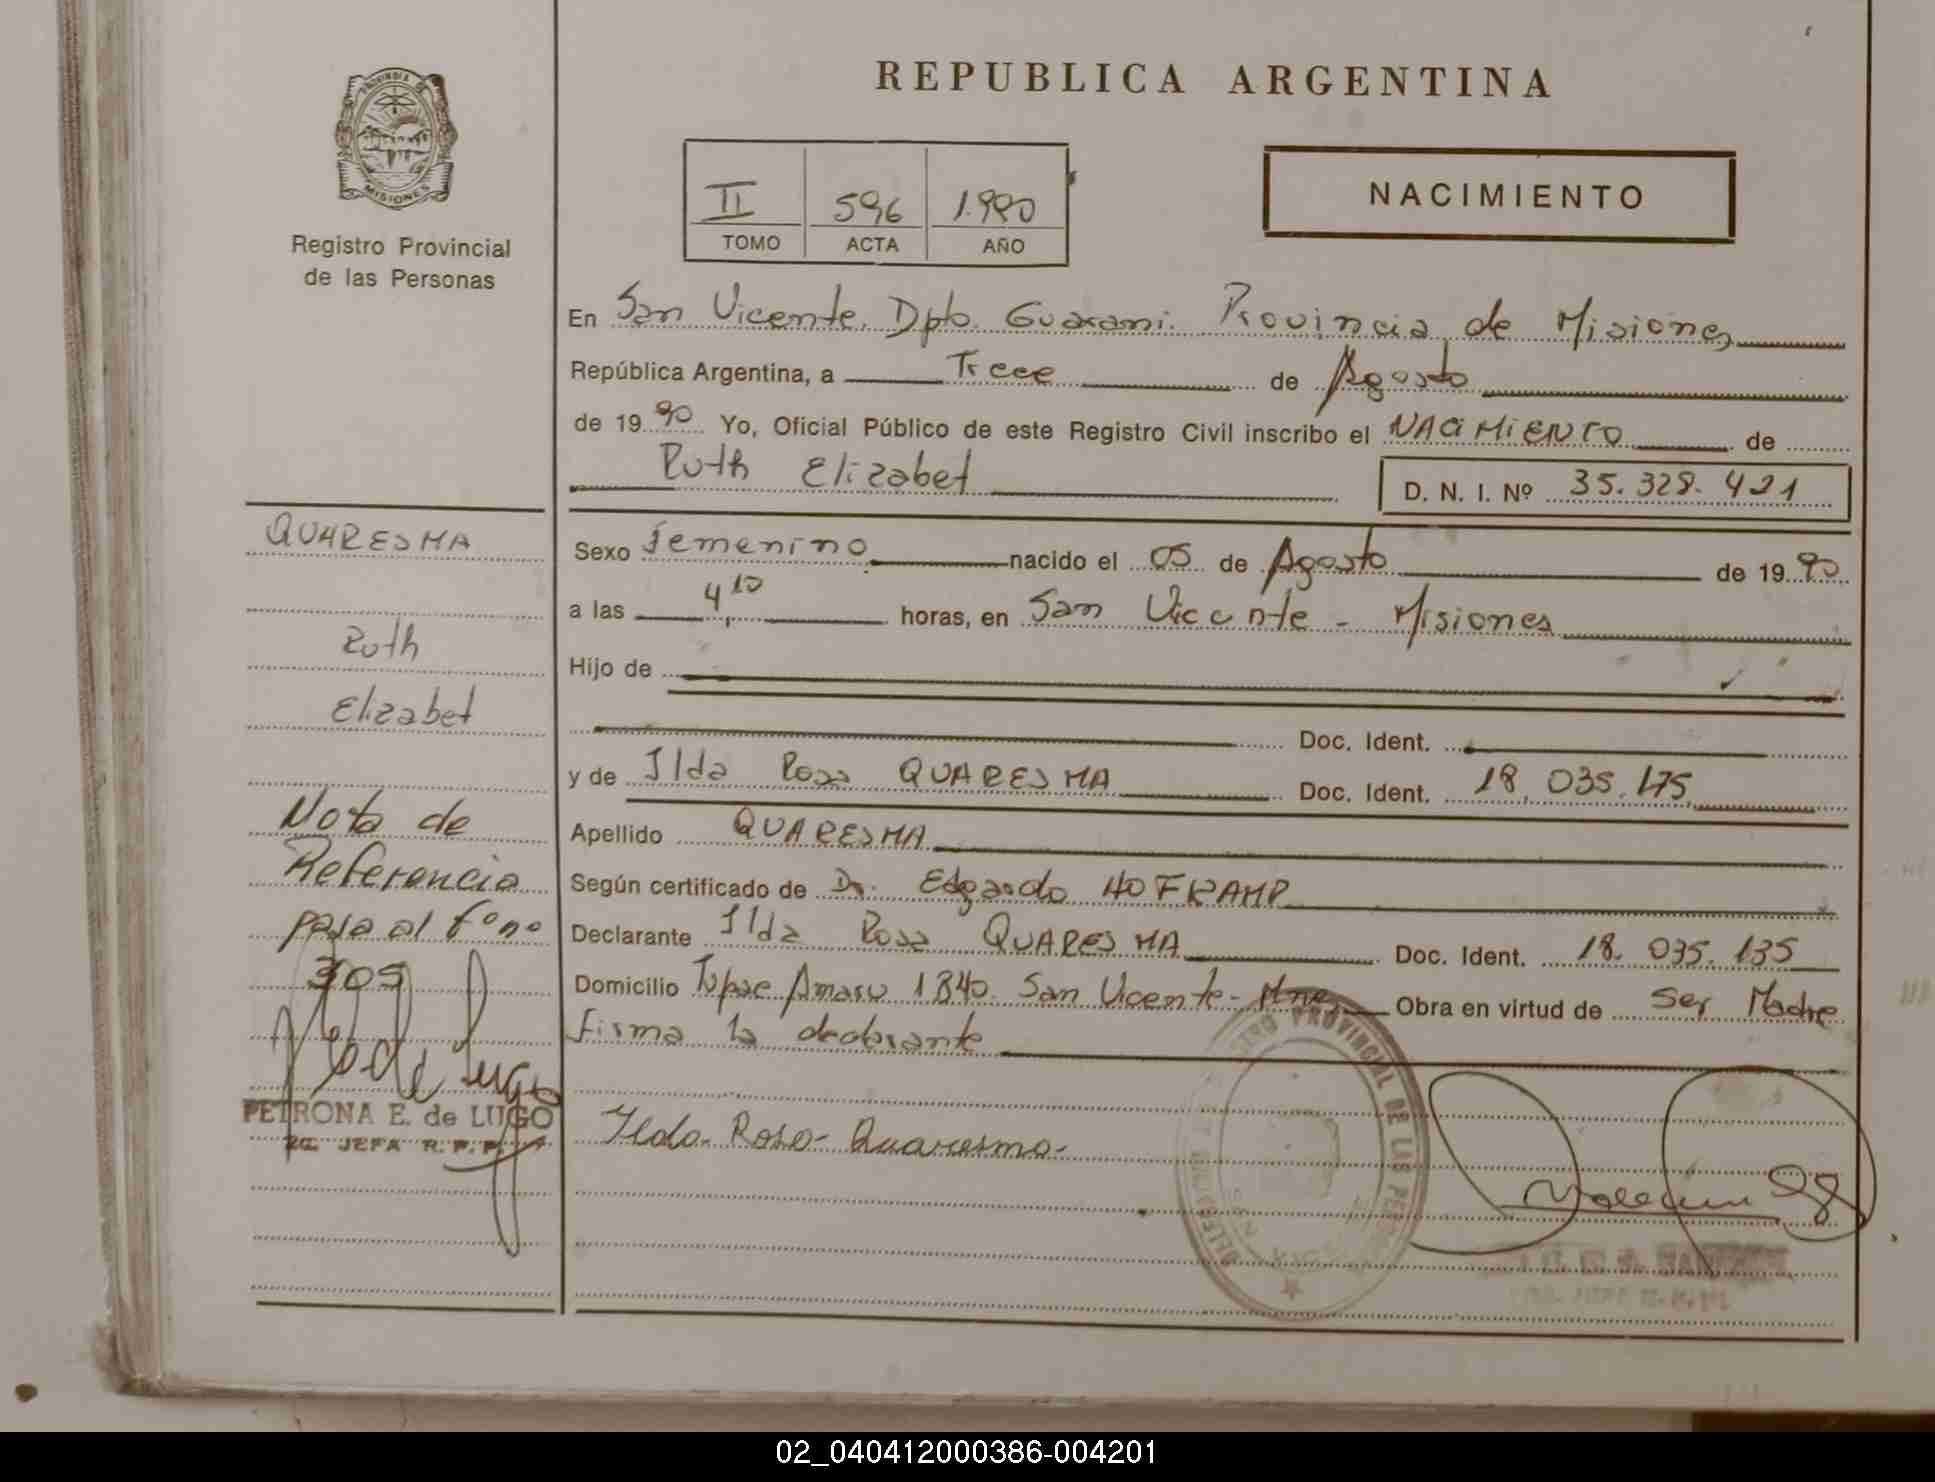 REPUBLICA ARGENTINA
PROVINCIA DE
MISIONES
Registro Provincial
de las Personas
II 596 1.990
TOMO ACTA AÑO
NACIMIENTO
En San Vicente. Dpto. Guarani. Provincia de Misiones
República Argentina, a Trece de Agosto
de 1990 Yo, Oficial Público de este Registro Civil inscribo el NACIMIENTO de
Ruth Elizabet D. N. I. Nº 35.328.421
Sexo Femenino nacido el 05 de Agosto de 1990
a las 4,10 horas, en San Vicente - Misiones
Hijo de
Doc. Ident.
y de Ilda Rosa QUARESMA Doc. Ident. 18.035.175
Apellido QUARESMA
Según certificado de Dr. Edgardo
Declarante Ilda Rosa QUARESMA Doc. Ident. 18.035.135
Domicilio Tupac Amaru 1840. San Vicente - Mnes Obra en virtud de Ser Madre
Firma la declarante
Ilda Rosa Quaresma
QUARESMA
Ruth
Elizabet
Nota de
Referencia
pasa al Fº nº
305
PETRONA E. de LUGO
2ª JEFA R.P.P.
REGISTRO PROVINCIAL DE LAS PERSONAS
02_040412000386-004201